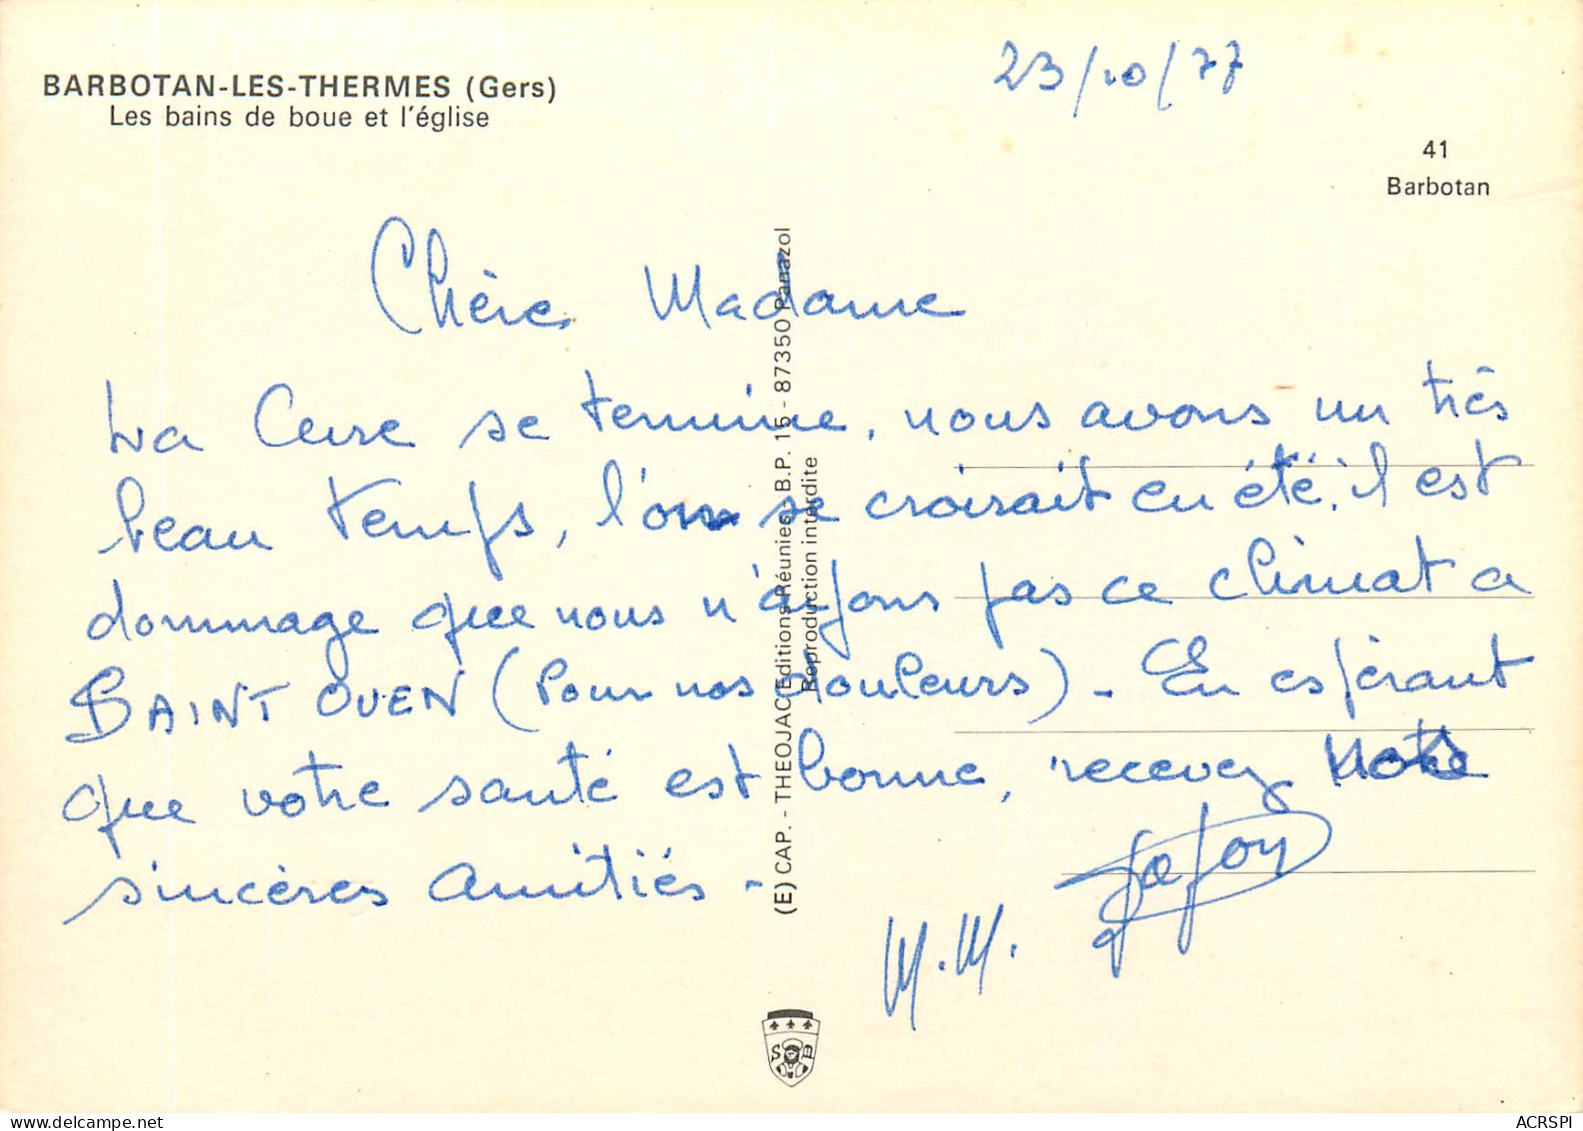 BARBOTAN-LES-THERMES (Gers)
Les bains de boue et l'église
23/10/77
41
Barbotan
Chère Madame
La Cure se termine, nous avons un très
beau temps, l'on se croirait en été, il est
dommage que nous n'ayons pas ce climat a
SAINT OUEN (Pour nos douleurs) - En espérant
que votre santé est bonne, recevez nos
sincères amitiés -
M.M.
(E) CAP. - THEOJAC Editions Réunies B.P. 15 - 87350 Panazol
Reproduction interdite
delcampe.net
ACRSPI